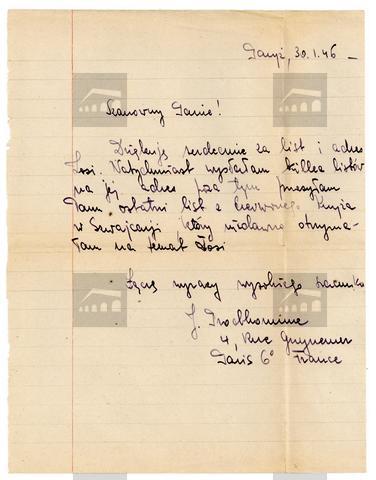 Paryż, 30.1.46 –
Szanowny Panie!
Dziękuję serdecznie za list i adres
Zosi. Natychmiast wysłałam kilka listów
na jej adres poza tym przesyłam
Panu ostatni list z Czerwonego Krzyża
w Szwajcarji, który niedawno otrzyma-
łam na temat Zosi
Łączę wyrazy wysokiego szacunku
J.
4, Rue Guynemer
Paris 6° France